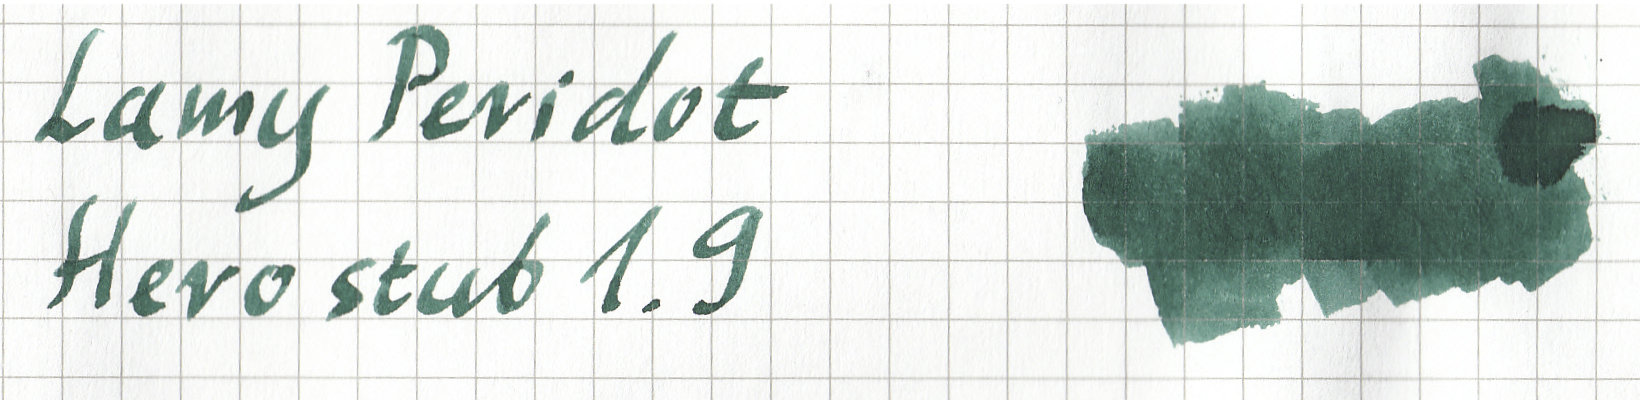 Lamy Peridot
Hero stub 1.9